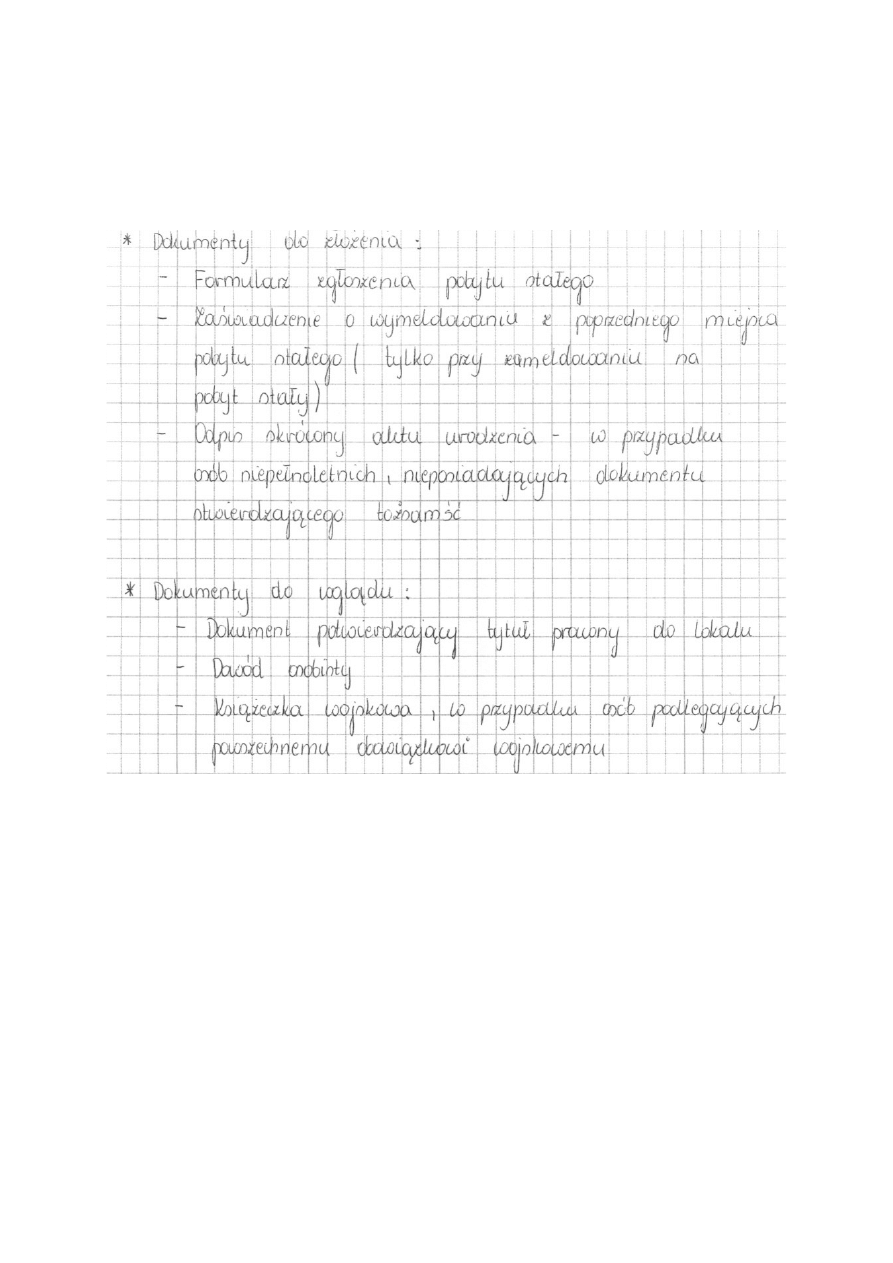 * Dokumenty do złożenia :
- Formularz zgłoszenia pobytu stałego
- Zaświadczenie o wymeldowaniu z poprzedniego miejsca
pobytu stałego ( tylko przy zameldowaniu na
pobyt stały)
- Odpis skrócony aktu urodzenia - w przypadku
osób niepełnoletnich, nieposiadających dokumentu
stwierdzającego tożsamść
* Dokumenty do wglądu :
- Dokument potwierdzający tytuł prawny do lokalu
- Dowód osobisty
- Książeczka wojskowa , w przypadku osób podlegających
powszechnemu obowiązkowi wojskowemu